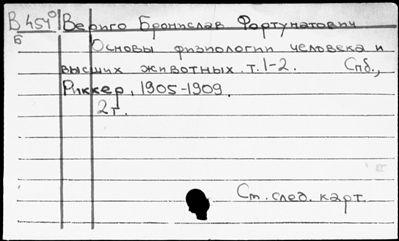 В 454⁰ Вериго Бронислав Фортунатович
Б Основы физиологии человека и
высших животных. т. 1-2. Спб.,
Риккер, 1905-1909.
2 т.
См. след. карт.